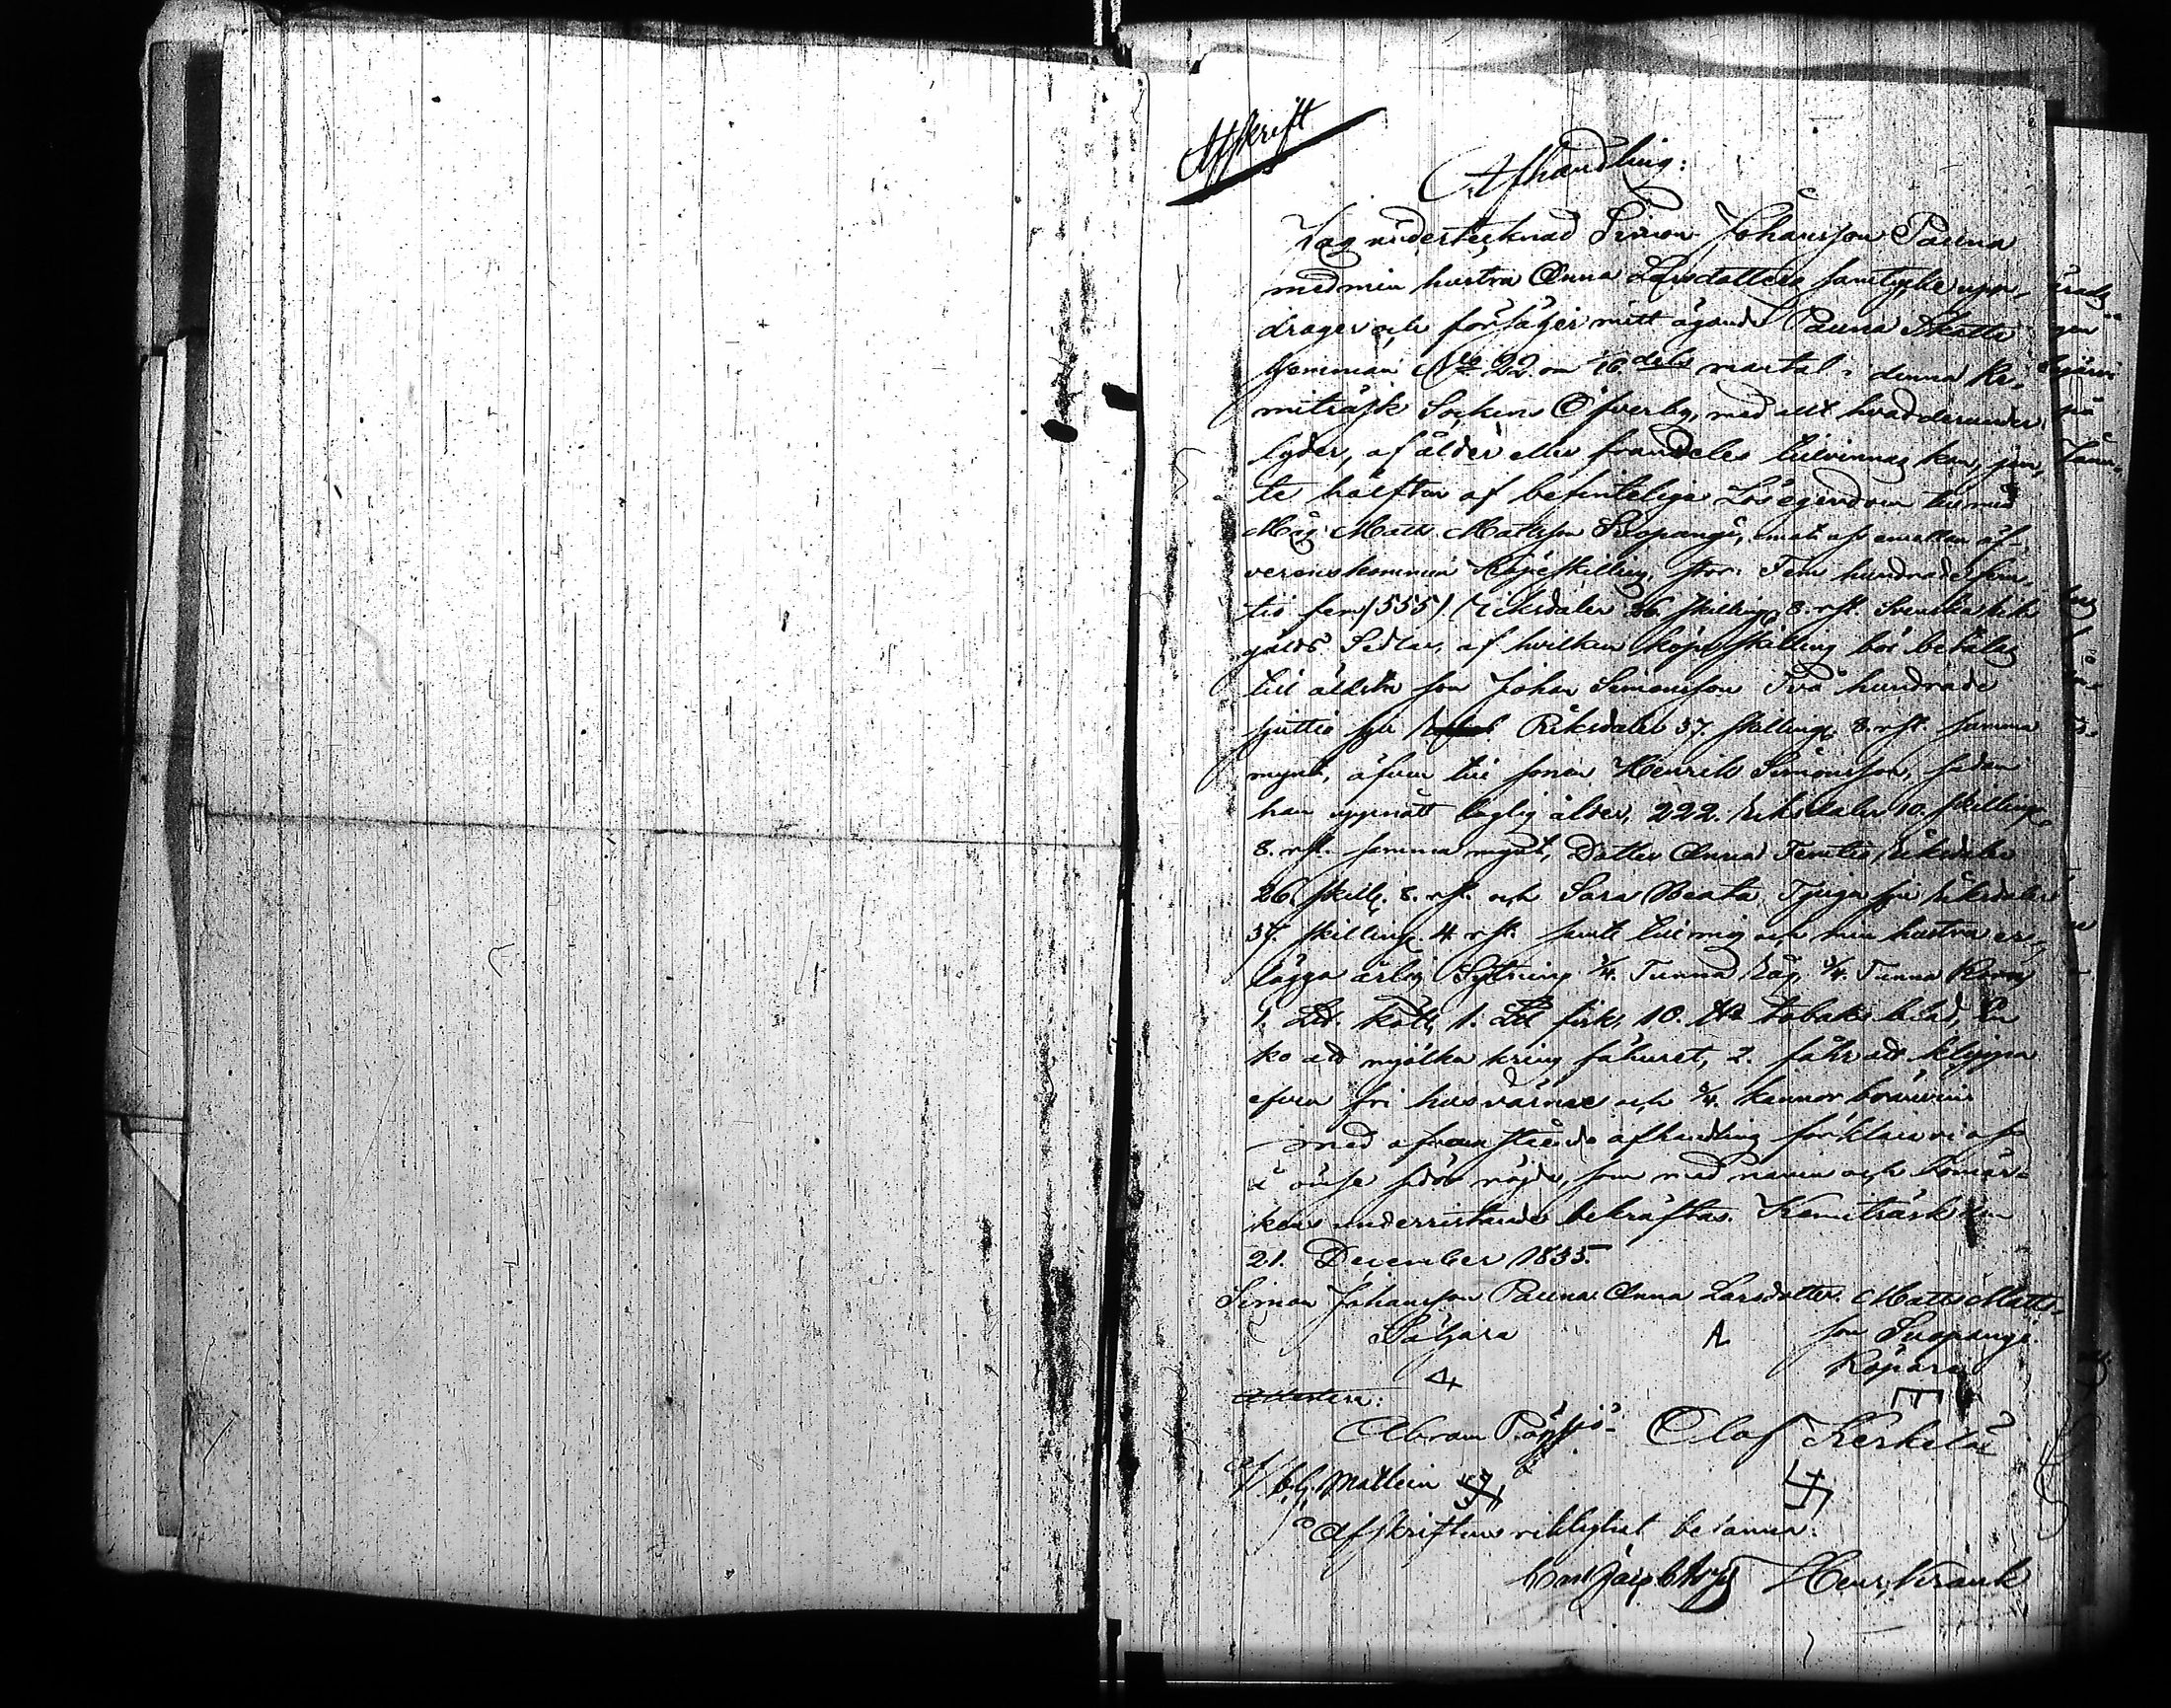 Afskrift
Afhandling:
Jag undertecknad Simon Johansson Pauna
med min hustru Anna Larsdotters samtycke upp-
drager och försäljer mitt ägande Pauna Skatte
hemman No 22. om 16.dels mantal i denna Ke-
miträsk Sockens Öfverby, med allt hvad derunder
lyder, af ålder eller framdeles tillvinnas kan, jem-
te hälften af befintelige Lösegendom till min
Måg Matts Mattsson Suopangi, mot oss emellan öf-
verenskommin Köpeskilling stor: Fem hundrade fem-
tio fem (555) Riksdaler 26 skilling 8. rst. Svenska Rik
gälds Sedlar, af hvilken köpeskilling bör betalas
till äldste son Johan Simonsson Två hundrade
sjuttio sju Riksdaler 37. skilling 8. rst. samma
mynt, äfven till sonen Henrik Simonsson, sedan
han uppnått laglig ålder, 222. Riksdaler 10. skilling
8. rst. samma mynt, Dotter Anna Femtio Riksdaler
26. skill. 8. rst. och Sara Beata Tjugu sju Riksdaler
37. skilling. 4 rst. samt till mig och min hustru er-
lägga årlig Sytning 3/4. Tunna Råg, 3/4. Tunna Korn
1. L℔. kött, 1. L℔ fisk, 10. ℔ tobaks blad, En
ko att mjölka kring fähuset, 2. fåhr att klippa
efven fri husvärme och 3/4. kannor bränvin
med ofvanstående afhandling förklara vi oss
å ömse sidor nöjde, som med namn och bomär-
kens underristande bekräftas. Kemiträsk den
21. December 1835.
Simon Johansson Pauna Anna Larsdotter. Matts Matts-
Säljare A son Suopangi.
Köpare
Abram Olof Kerkelä
Mattein
Afskriftens riktighet betanna:
Henr. Krank